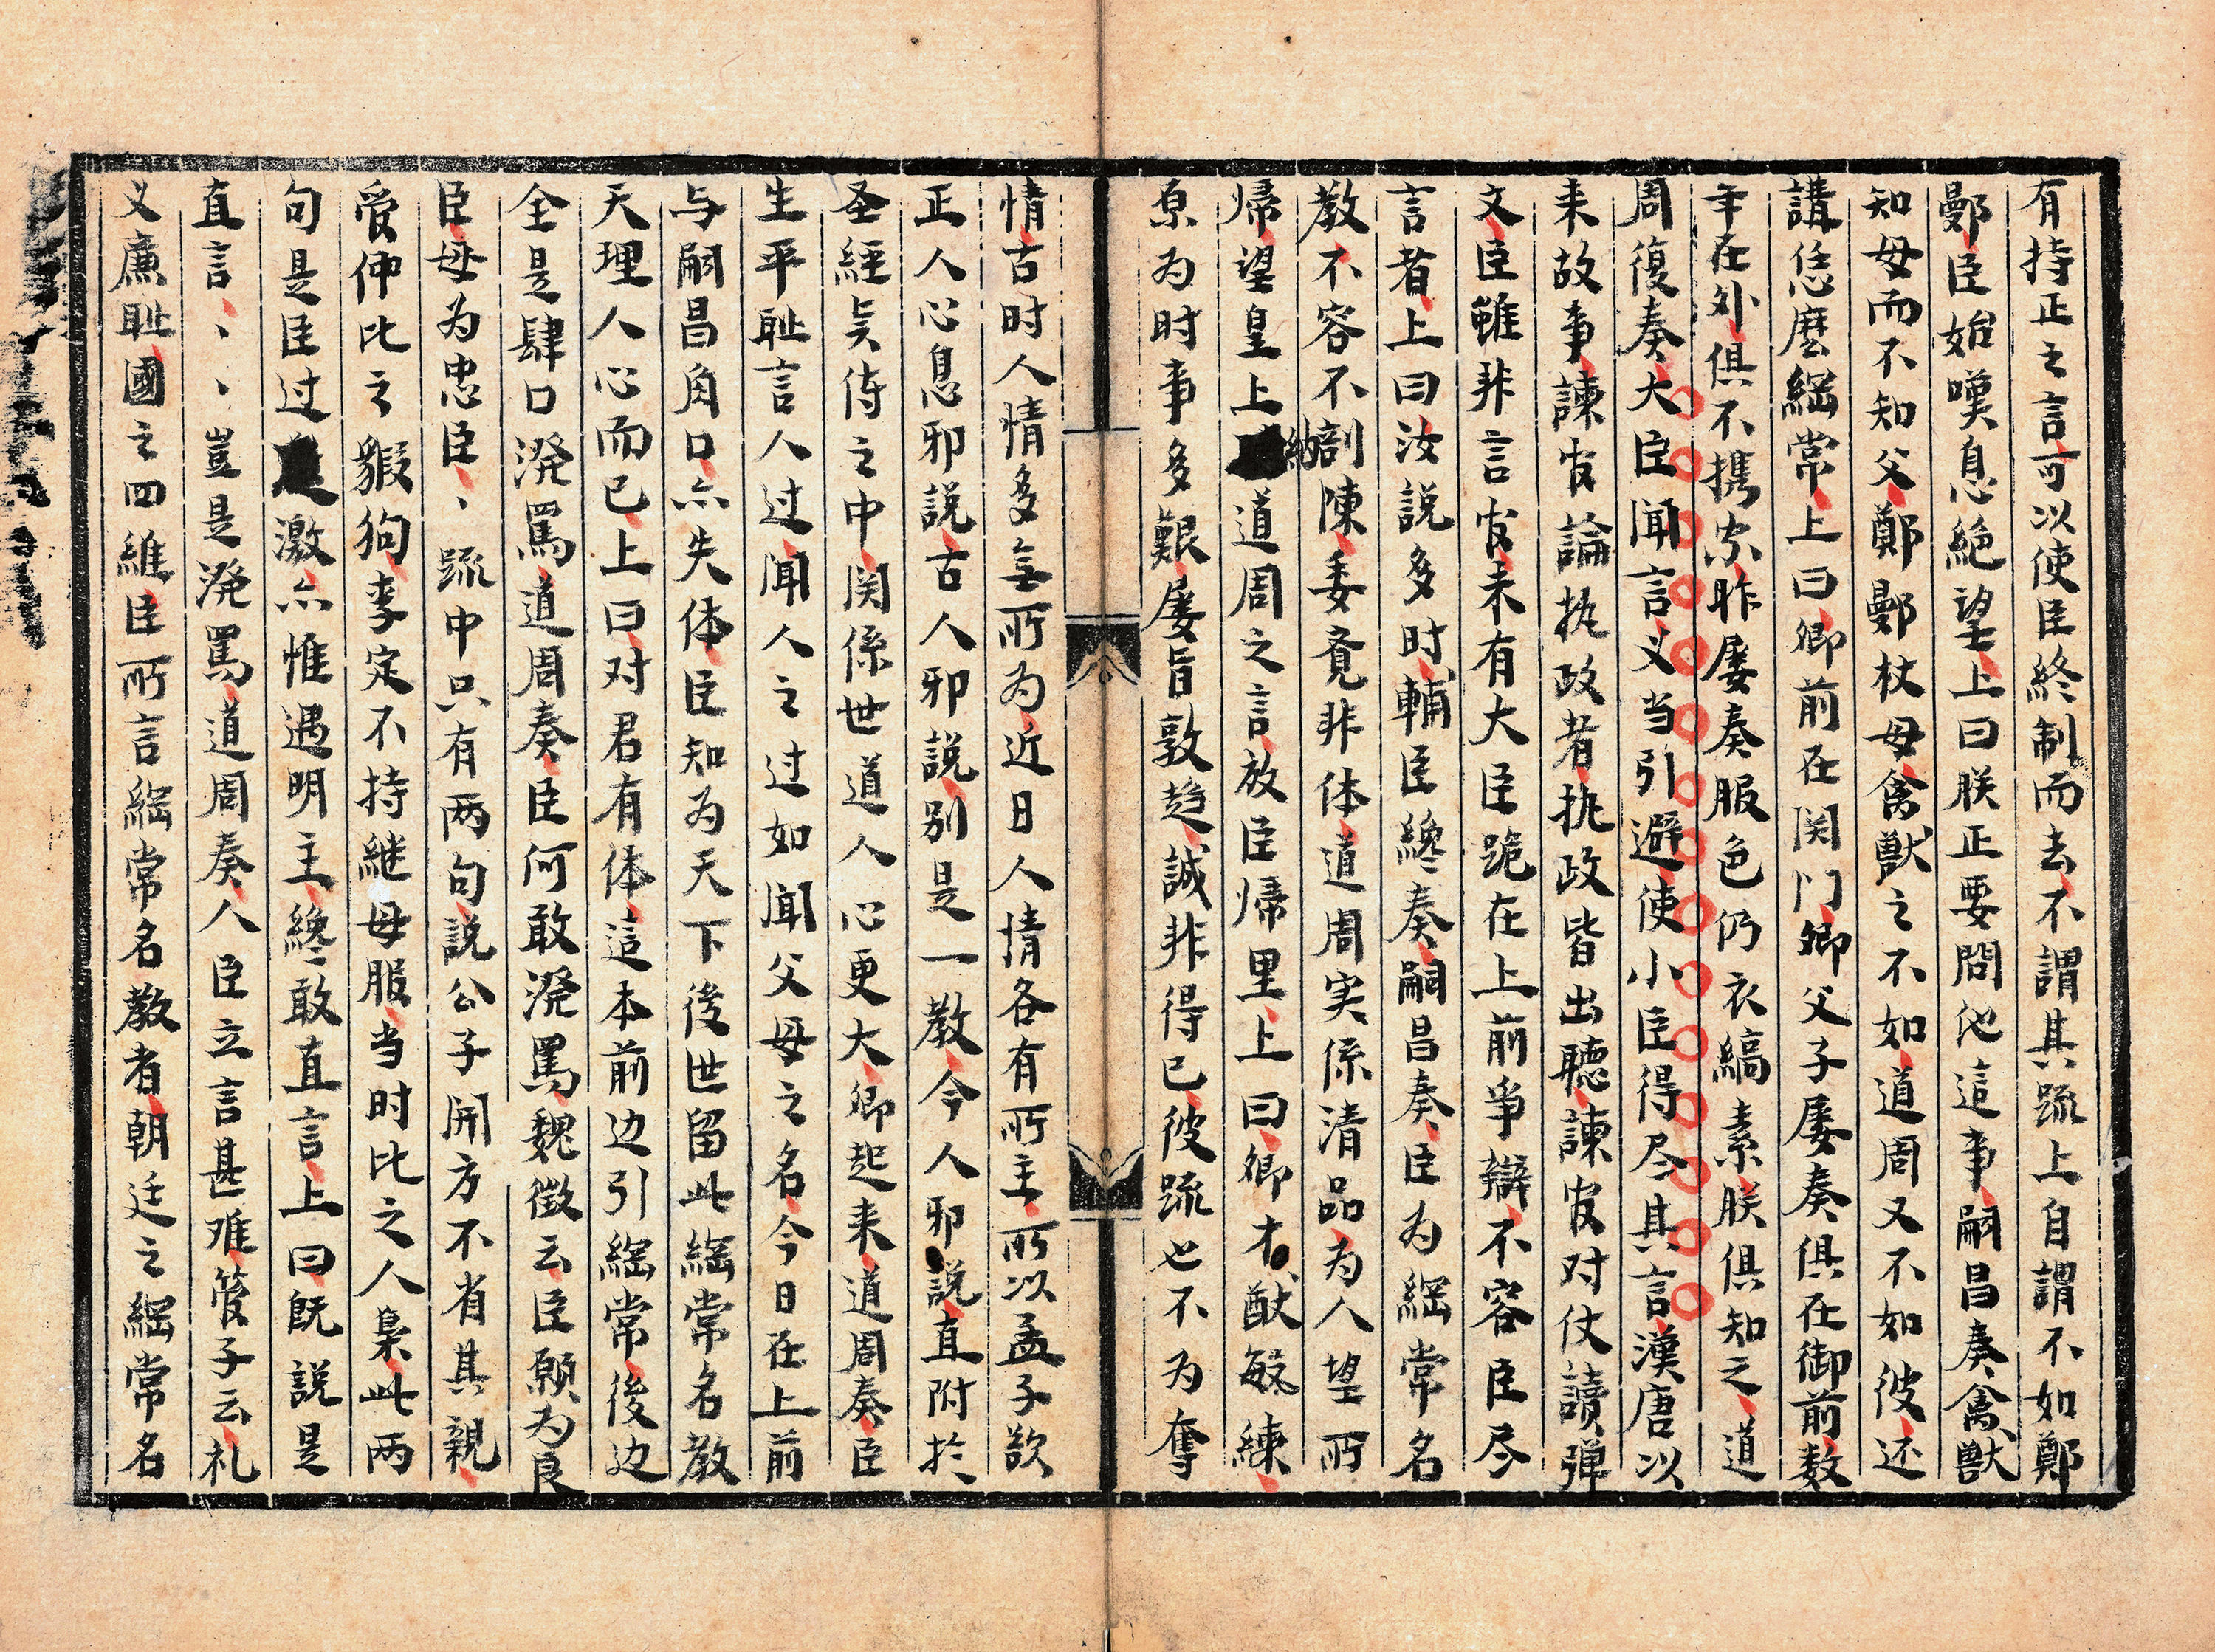 有持正之言可以使臣終制而去不謂其疏上自謂不如鄭
鄤臣始嘆息絕望上曰朕正要問他這事嗣昌奏禽獸
知母而不知父鄭鄤杖母禽獸之不如道周又不如彼还
講恁麽綱常上曰卿前在関门卿父子屡奏俱在御前数
年在外俱不携家昨屡奏服色仍衣縞素朕俱知之道
周復奏大臣闻言义当引避使小臣得尽其言漢唐以
来故事諫官論执政者执政皆出聽諫官对仗讀弹
文臣雖非言官未有大臣跪在上前爭辯不容臣尽
言者上曰汝説多时輔臣纔奏嗣昌奏臣为綱常名
教不容不剖陳委竟非体道周实係清品为人望所
帰望皇上納道周之言放臣帰里上曰卿才猷敏練
京为时事多艱屡旨敦趋誠非得已彼疏也不为奪
情古时人情多無所为近日人情各有所主所以孟子欲
正人心息邪説古人邪説别是一教今人邪説直附於
圣經贤传之中関係世道人心更大卿起来道周奏臣
生平耻言人过闻人之过如闻父母之名今日在上前
与嗣昌角口亦失体臣知为天下後世留此綱常名教
天理人心而已上曰对君有体這本前边引綱常後边
全是肆口溌罵道周奏臣何敢溌罵魏徵云臣願为良
臣毋为忠臣、、疏中只有两句説公子開方不省其親、
爰伸比之豭狗李定不持継母服当时比之人枭此两
句是臣过激亦惟遇明主纔敢直言上曰旣説是
直言、、、豈是溌罵道周奏人臣立言甚难管子云礼
义廉耻國之四維臣所言綱常名教者朝廷之綱常名